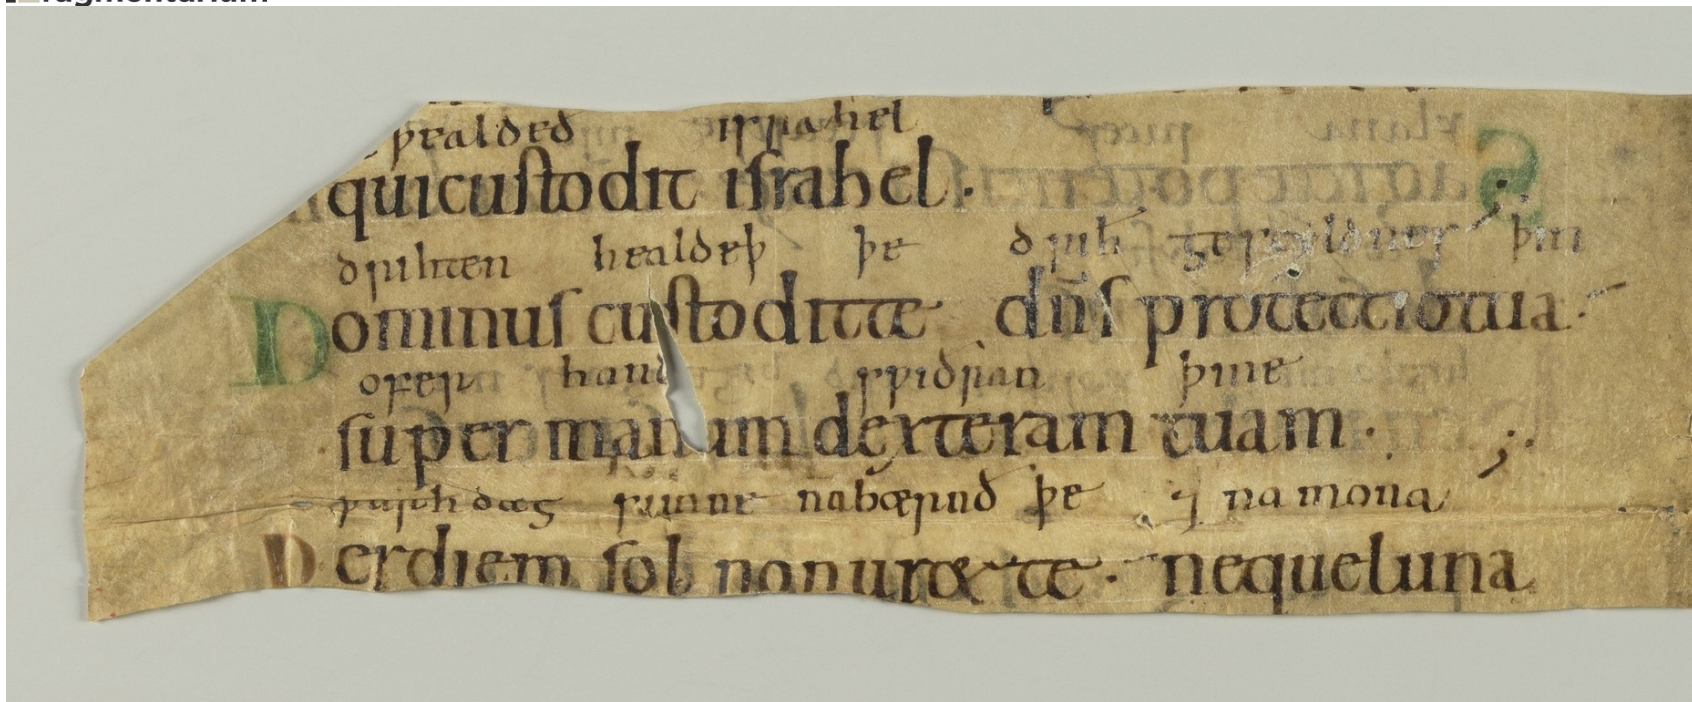 healded israhel
qui custodit israhel.
drihten healdeþ þe drih gescyldnes þin
Dominus custodit te dns protectio tua.
ofer hand swiðran þine
super manum dexteram tuam.
þurh dæg sunne nabærnð þe ⁊ na mona
Per diem sol non uret te. neque luna